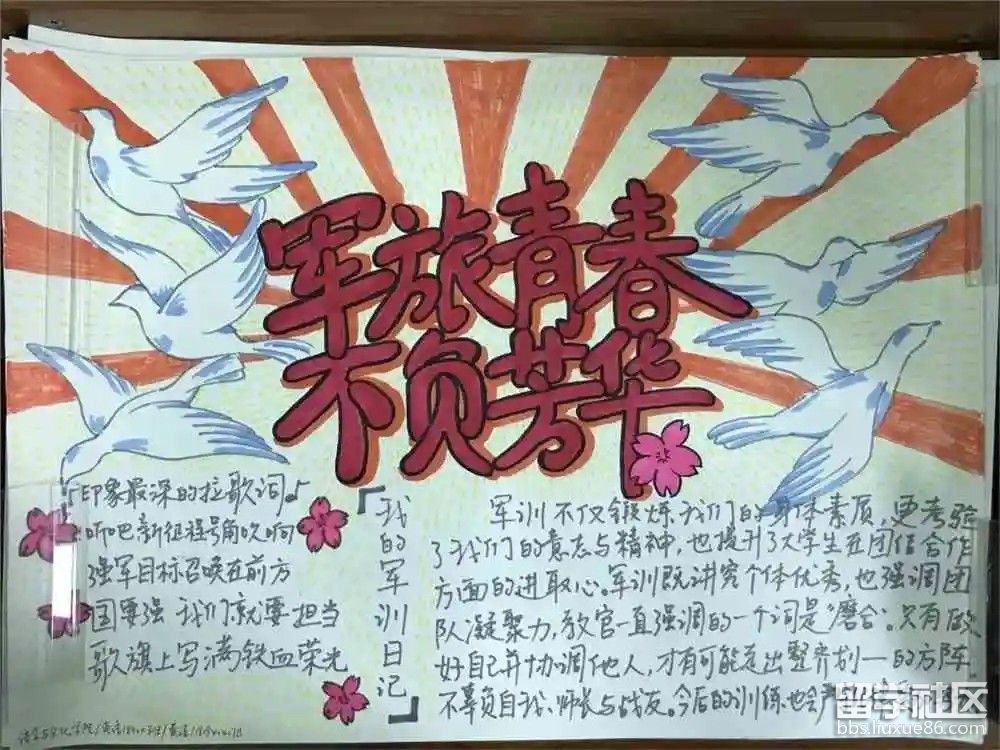 军旅青春
不负芳华
「印象最深的拉歌词」
听吧新征程号角吹响
强军目标召唤在前方
国要强 我们就要担当
歌旗上写满铁血荣光
「我的军训日记」
军训不仅锻炼我们的身体素质,更考验
了我们的意志与精神,也提升了大学生在团结合作
方面的进取心。军训既讲究个体优秀,也强调团
队凝聚力,教官一直强调的一个词是“磨合”。只有做
好自己并协调他人,才有可能走出整齐划一的方阵
不辜负自我、师长与战友。今后的训练也会严
留学社区
bbs.liuxue86.com